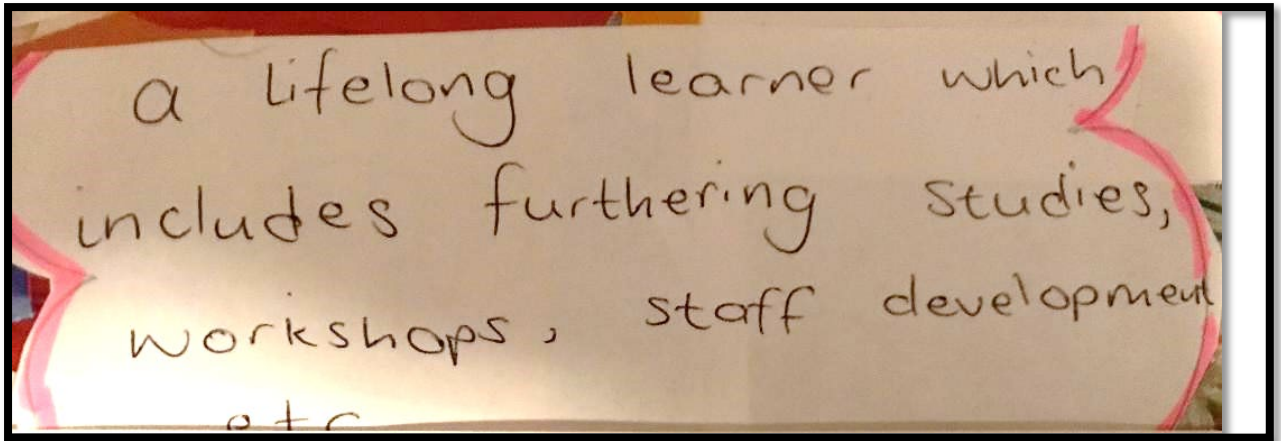 a lifelong learner which
includes furthering studies,
workshops, staff development
etc